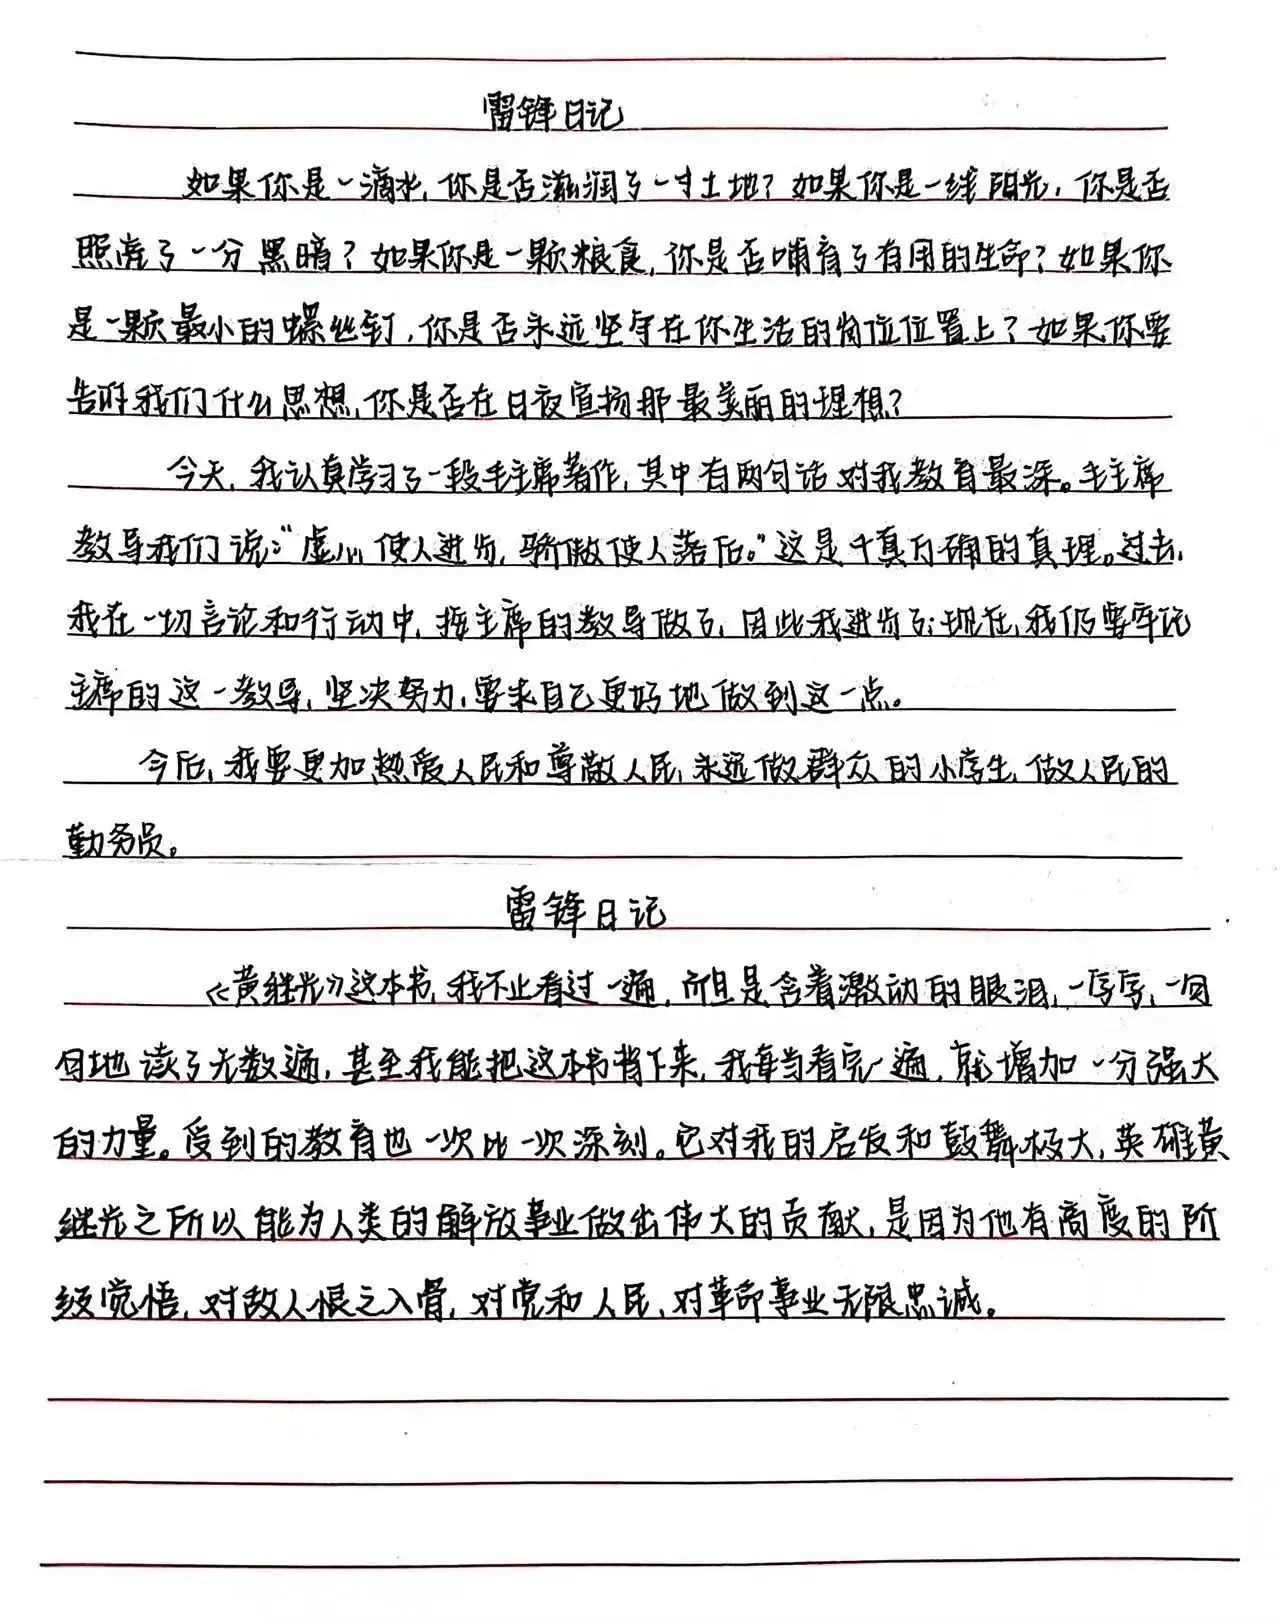 雷锋日记
如果你是一滴水,你是否滋润了一寸土地?如果你是一线阳光,你是否
照亮了一分黑暗?如果你是一颗粮食,你是否哺育了有用的生命?如果你
是一颗最小的螺丝钉,你是否永远坚守在你生活的岗位位置上?如果你要
告诉我们什么思想,你是否在日夜宣扬那最美丽的理想?
今天,我认真学习了一段毛主席著作,其中有两句话对我教育最深。毛主席
教导我们说:“虚心使人进步,骄傲使人落后。”这是千真万确的真理。过去,
我在一切言论和行动中,按主席的教导做了,因此我进步了;现在,我仍要牢记
主席的这一教导,坚决努力,要求自己更好地做到这一点。
今后,我要更加热爱人民和尊敬人民,永远做群众的小学生,做人民的
勤务员。
雷锋日记
《黄继光》这本书,我不止看过一遍,而且是含着激动的眼泪,一字字,一句
句地读了无数遍,甚至我能把这本书背下来,我每当看完一遍,就增加一分强大
的力量。受到的教育也一次比一次深刻。它对我的启发和鼓舞极大,英雄黄
继光之所以能为人类的解放事业做出伟大的贡献,是因为他有高度的阶
级觉悟,对敌人恨之入骨,对党和人民,对革命事业无限忠诚。